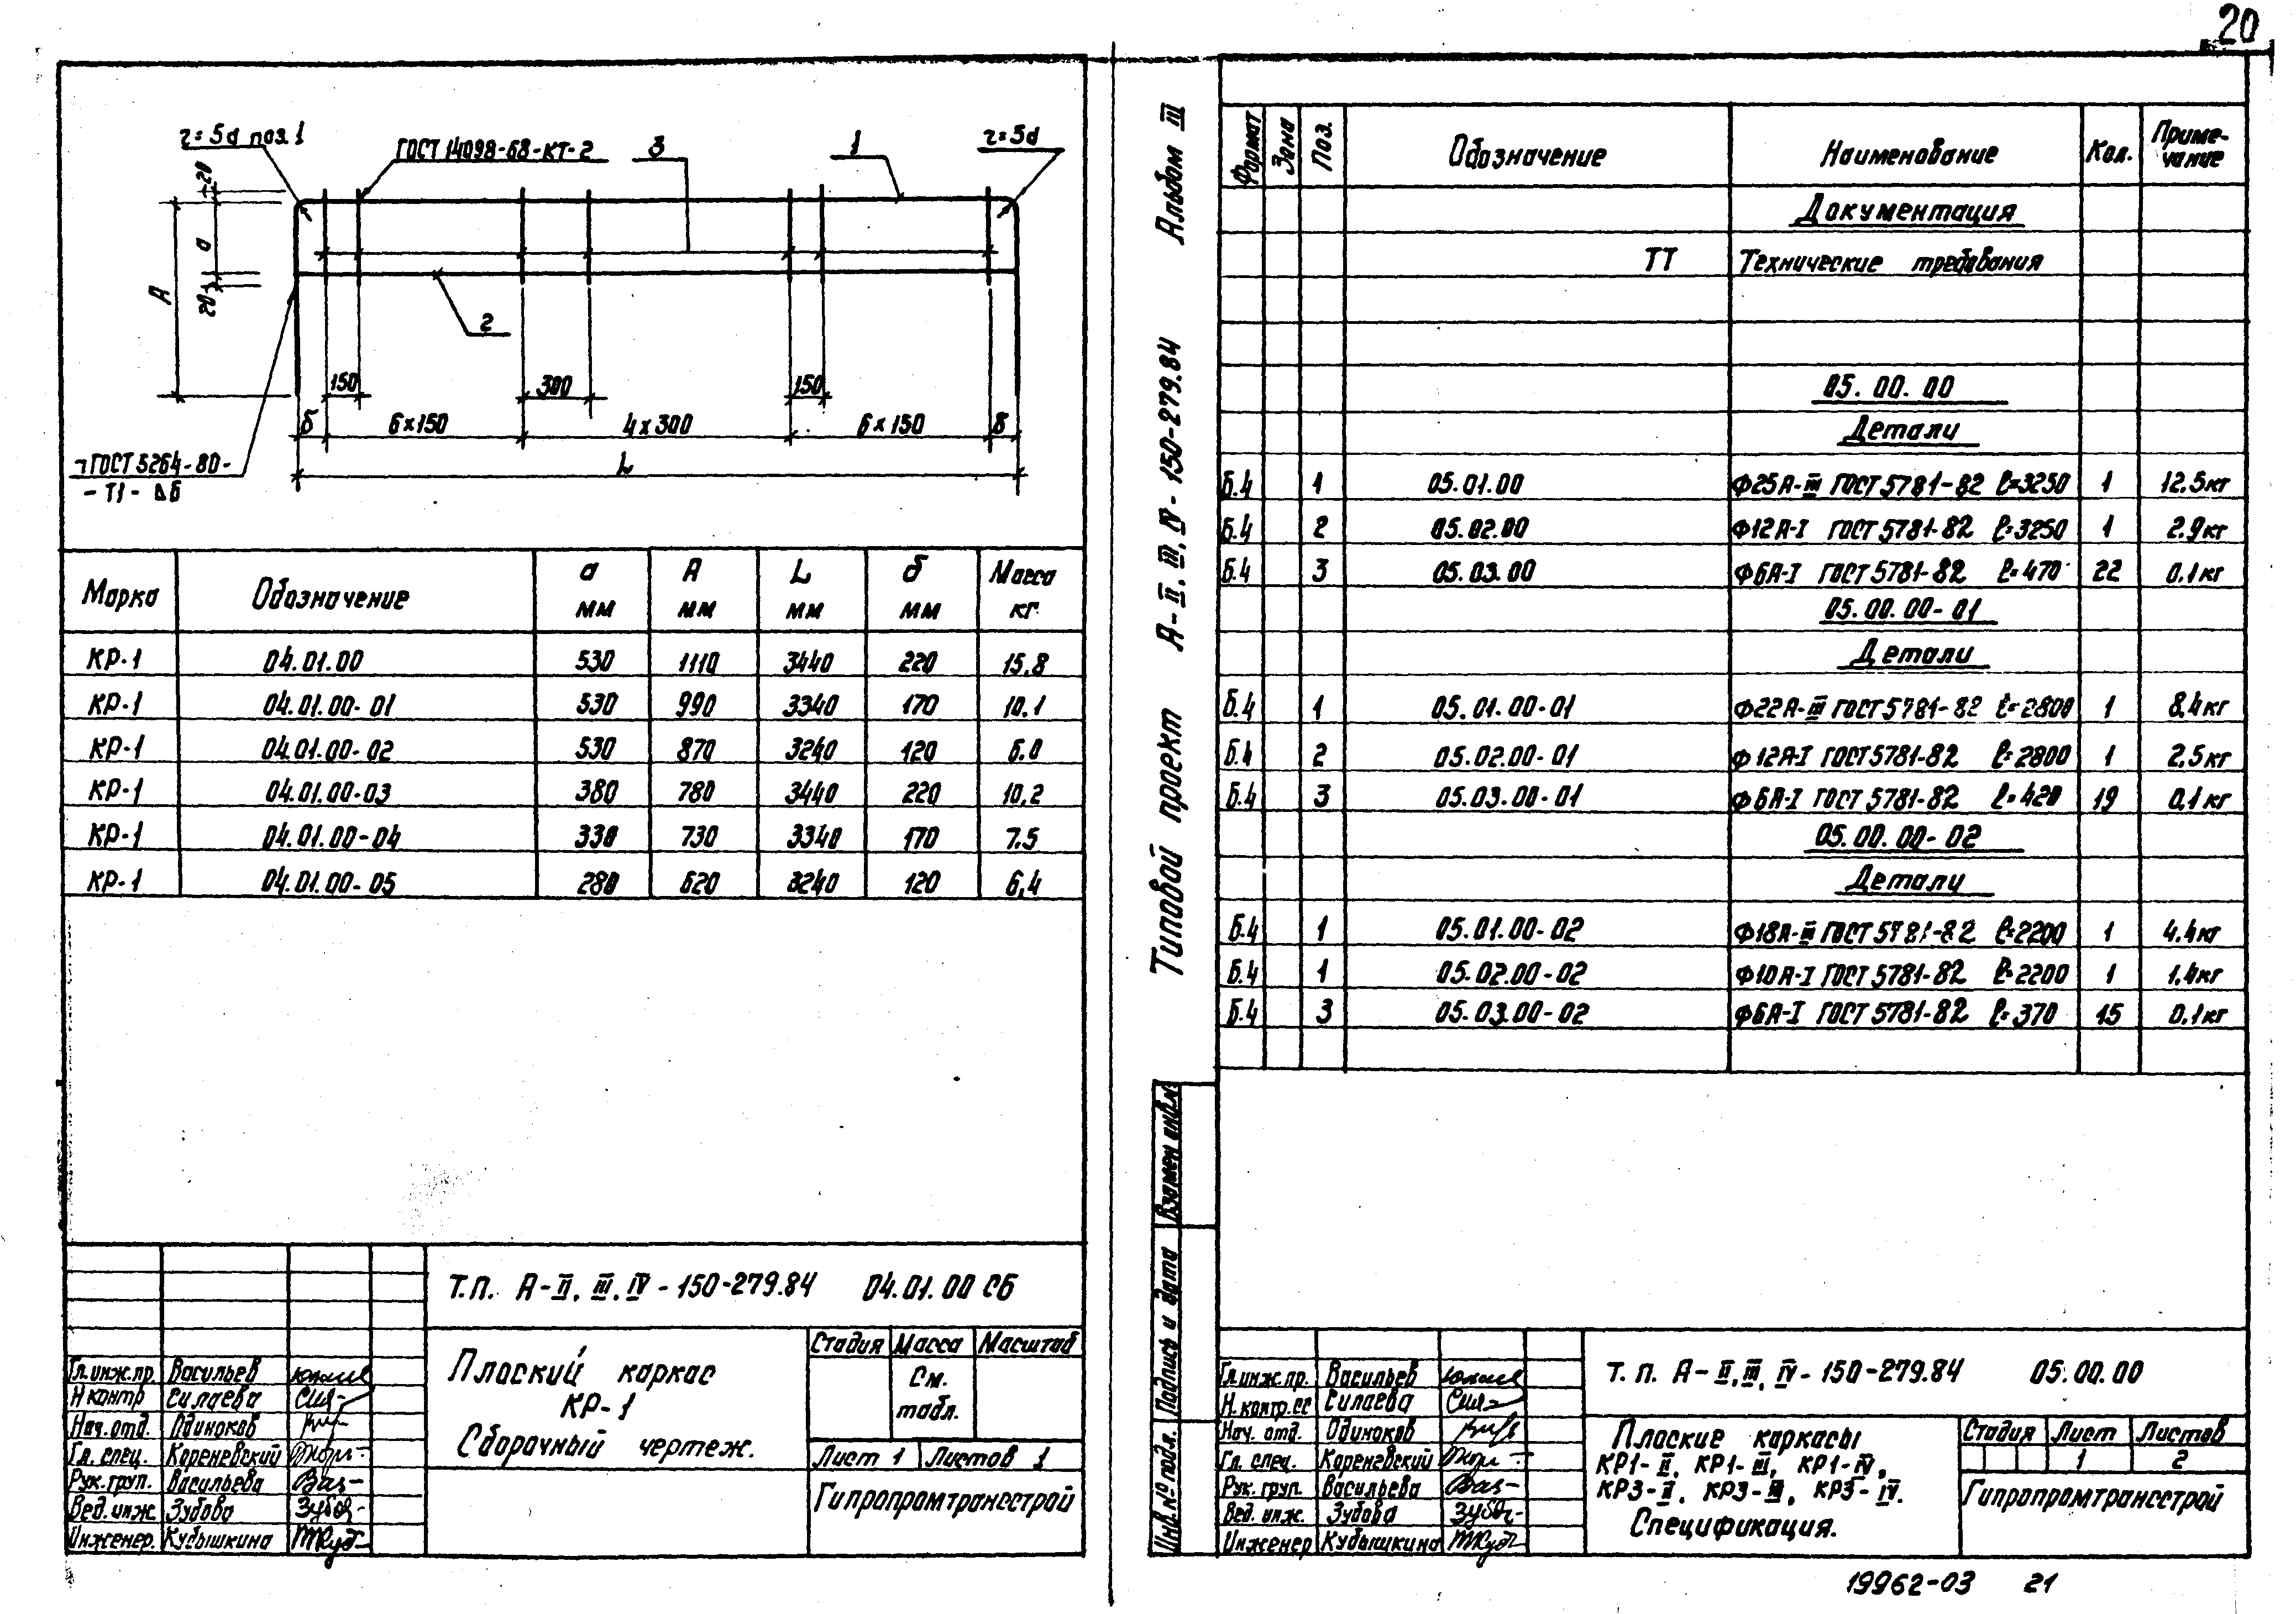 20
r=5d поз.1
ГОСТ 14098-68-КТ-2
3
1
r=5d
20
а
20
А
2
150
300
150
б
6×150
4×300
6×150
б
L
ГОСТ 5264-80-
-Т1-Δ6
Марка Обозначение а мм А мм L мм б мм Масса кг
КР-1 04.01.00 530 1110 3440 220 15,8
КР-1 04.01.00-01 530 990 3340 170 10,1
КР-1 04.01.00-02 530 870 3240 120 6.0
КР-1 04.01.00-03 380 780 3440 220 10,2
КР-1 04.01.00-04 330 730 3340 170 7.5
КР-1 04.01.00-05 280 620 3240 120 6,4
Т.П. А-II, III, IV-150-279.84 04.01.00 СБ
Плоский каркас
КР-1
Сборочный чертеж.
Стадия Масса Масштаб
См.
табл.
Лист 1 Листов 1
Гипропромтрансстрой
Гл.инж.пр. Васильев
Н контр Силаева
Нач.отд. Одиноков
Гл. спец. Кореневский
Рук.груп. Васильева
Вед.инж. Зубова
Инженер. Кубышкина
Типовой проект А-II, III, IV-150-279.84 Альбом III
Взамен инв.№
Подпись и дата
Инв.№ подл.
Формат Зона Поз. Обозначение Наименование Кол. Приме-
чание
Документация
ТТ Технические требования
05.00.00
Детали
Б.4 1 05.01.00 Ф25А-III ГОСТ 5781-82 ℓ=3250 1 12.5кг
Б.4 2 05.02.00 Ф12А-I ГОСТ 5781-82 ℓ=3250 1 2.9кг
Б.4 3 05.03.00 Ф6А-I ГОСТ 5781-82 ℓ=470 22 0.1кг
05.00.00-01
Детали
Б.4 1 05.01.00-01 Ф22А-III ГОСТ 5781-82 ℓ=2800 1 8,4кг
Б.4 2 05.02.00-01 Ф12А-I ГОСТ 5781-82 ℓ=2800 1 2,5кг
Б.4 3 05.03.00-01 Ф6А-I ГОСТ 5781-82 ℓ=420 19 0,1кг
05.00.00-02
Детали
Б.4 1 05.01.00-02 Ф18А-III ГОСТ 5781-82 ℓ=2200 1 4.4кг
Б.4 1 05.02.00-02 Ф10А-I ГОСТ 5781-82 ℓ=2200 1 1.4кг
Б.4 3 05.03.00-02 Ф6А-I ГОСТ 5781-82 ℓ=370 15 0,1кг
Т.П. А-II, III, IV-150-279.84 05.00.00
Плоские каркасы
КР1-II, КР1-III, КР1-IV,
КР3-II, КР3-III, КР3-IV.
Спецификация.
Стадия Лист Листов
1 2
Гипропромтрансстрой
Гл.инж.пр. Васильев
Н.контр.СС Силаева
Нач. отд. Одиноков
Гл. спец. Кореневский
Рук. груп. Васильева
Вед. инж. Зубова
Инженер Кубышкина
19962-03 21